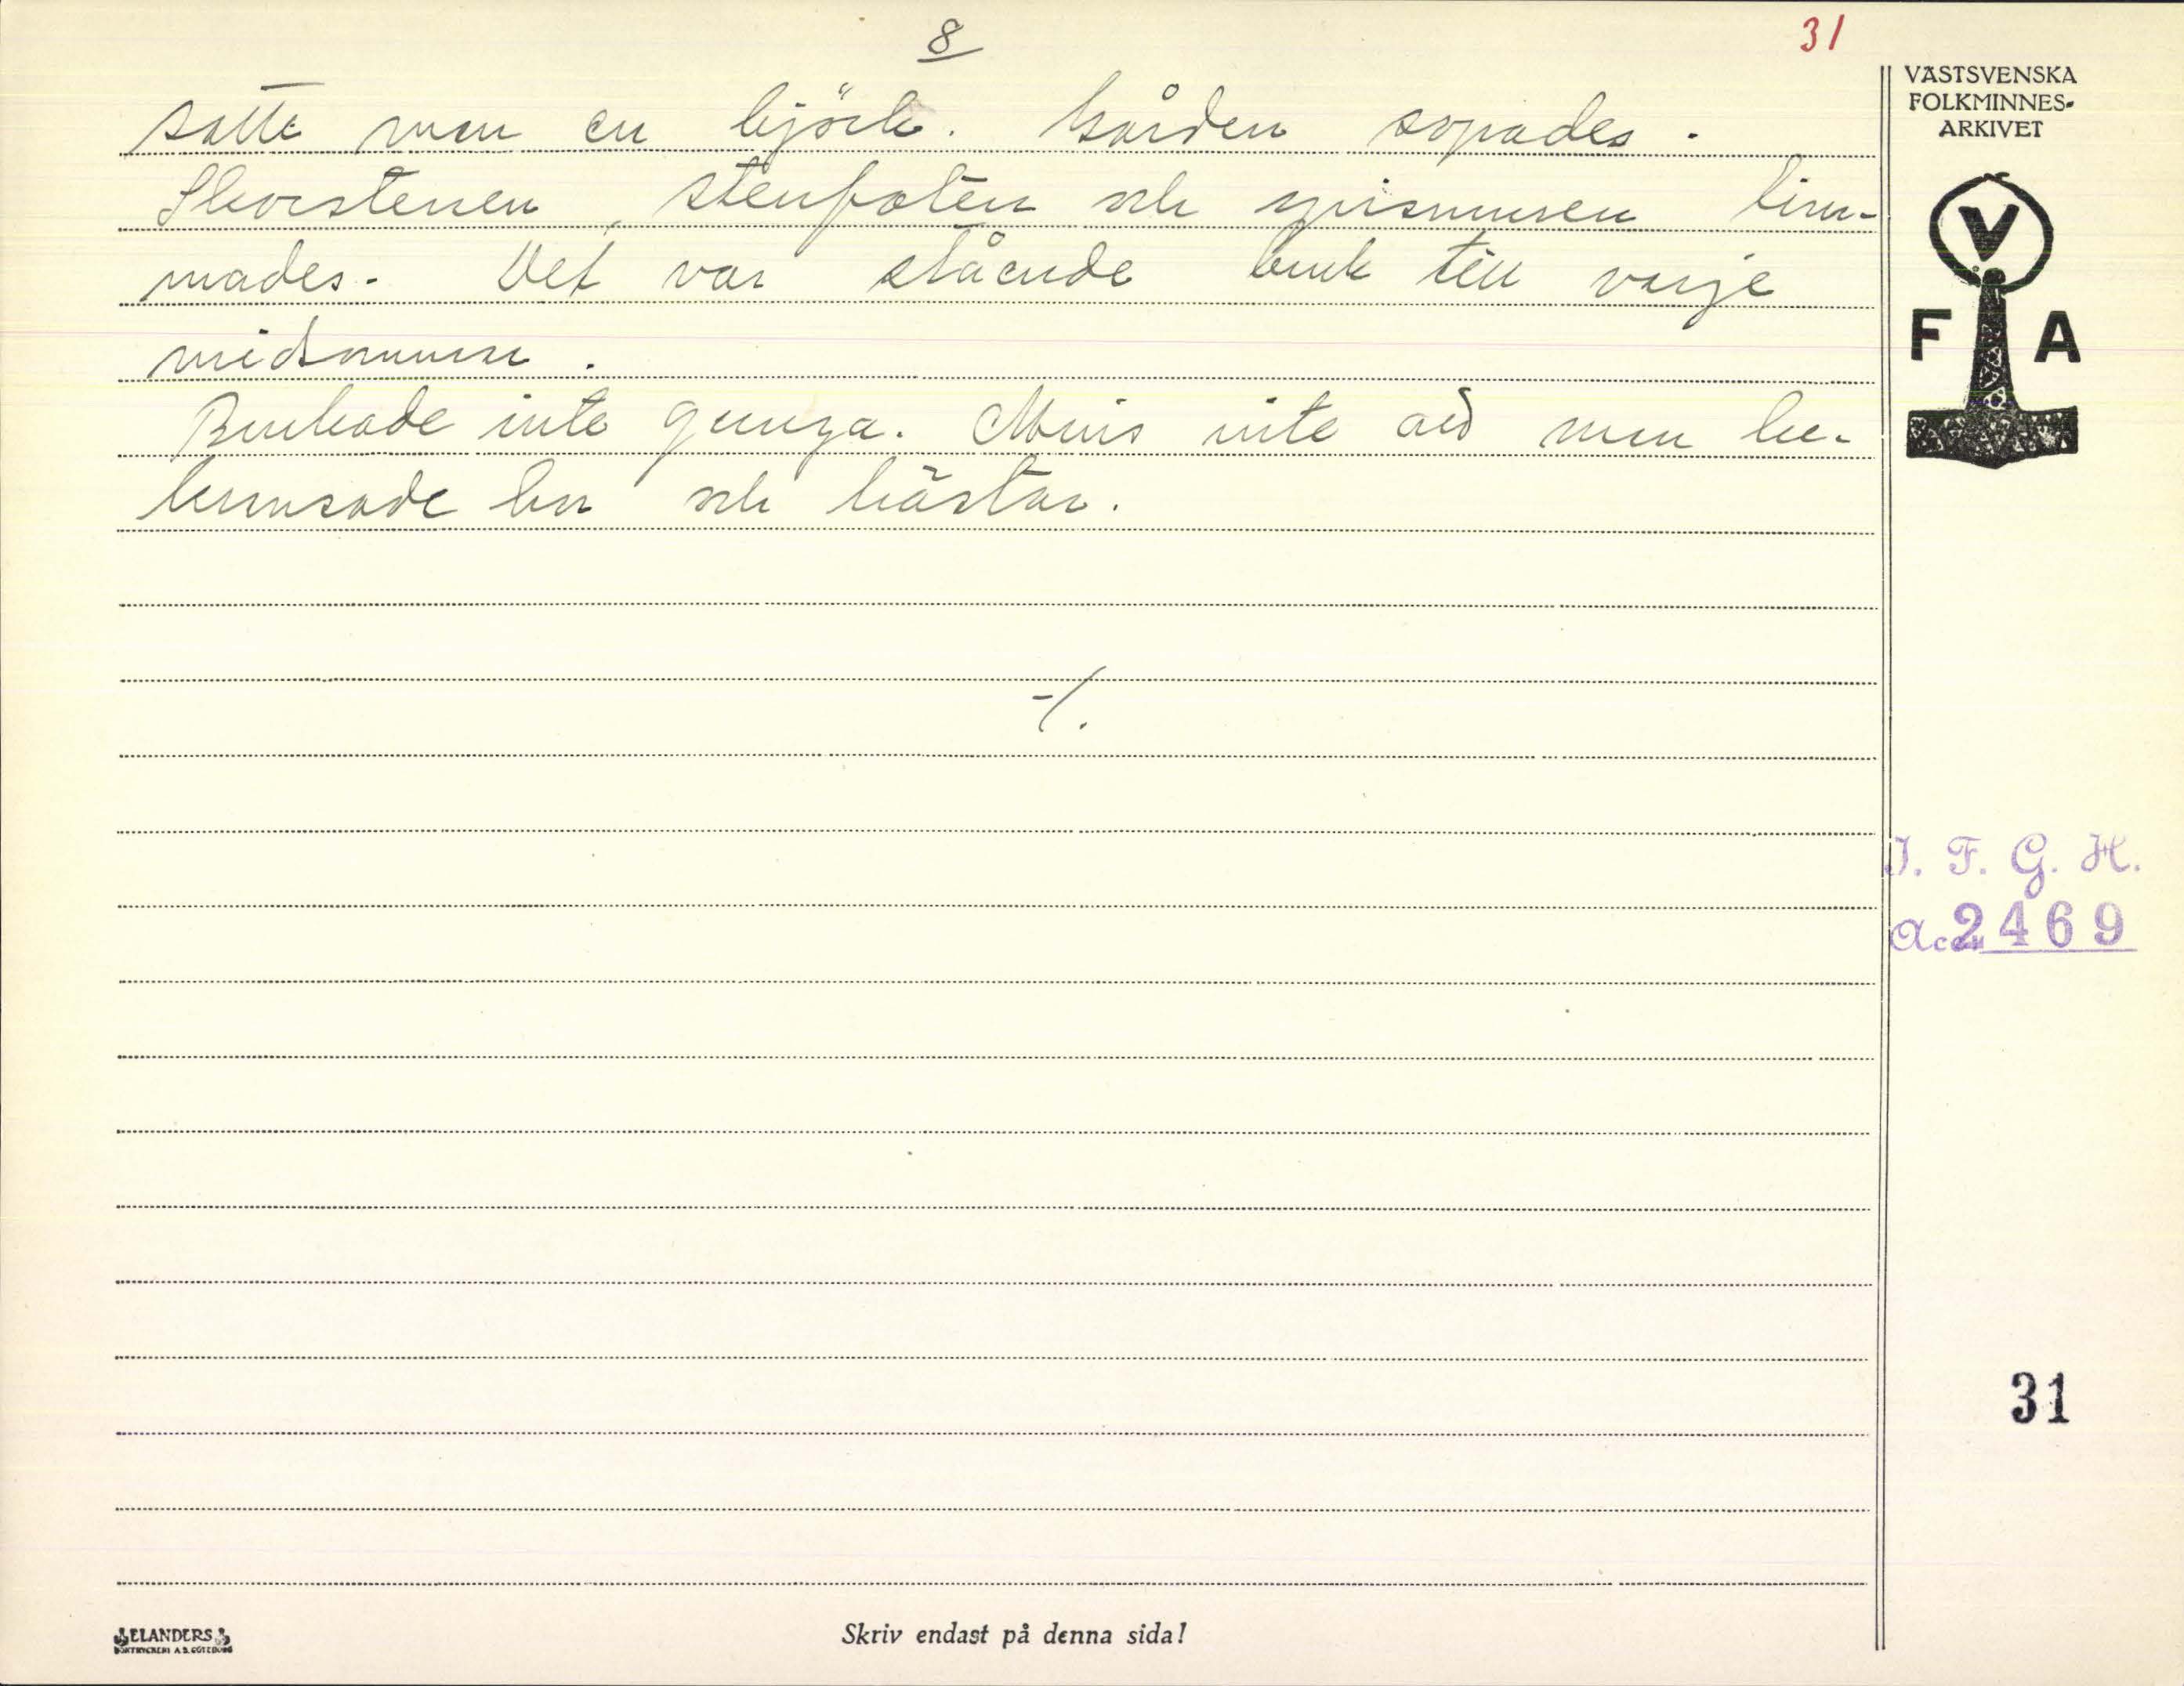 8
31
satte man en björk. Gården sopades.
Skorstenen, stenfoten och spismuren lim-
mades. Det var stående bruk till varje
midsommar.
Brukade inte gunga. Minns inte att man be-
kransade kor och hästar.
-/.
VÄSTSVENSKA
FOLKMINNES-
ARKIVET
V
F A
I. F. G. H.
Acc. 2469
31
ELANDERS
BOKTRYCKERI A.B. GÖTEBORG
Skriv endast på denna sida!